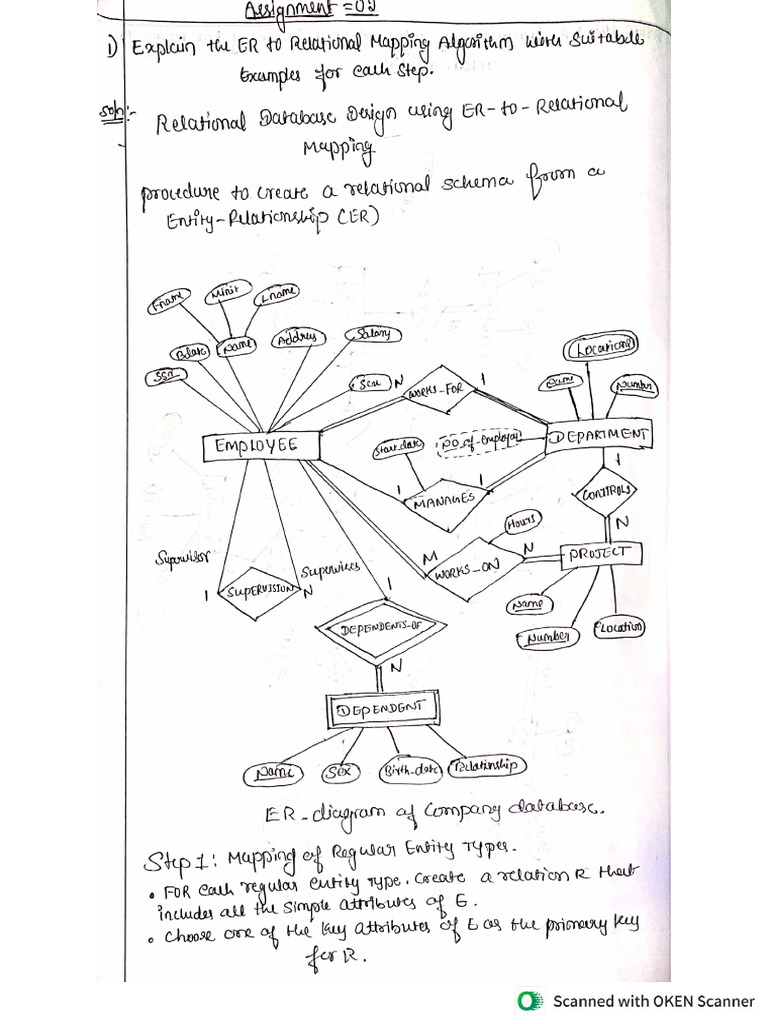 Assignment = 03
1) Explain the ER to Relational Mapping Algorithm with suitable
Examples for each step.
Soln:- Relational Database Design using ER-to-Relational
Mapping
procedure to create a relational schema from a
Entity-Relationship (ER)
Fname
Minit
Lname
Bdate
Name
Address
Salary
Ssn
Sex
N
WORKS_FOR
1
Locations
Name
Number
EMPLOYEE
Start date
No_of_employee
DEPARTMENT
1
MANAGES
1
1
CONTROLS
N
Hours
M
WORKS_ON
N
PROJECT
Supervisor
Supervisees
1
SUPERVISION
N
1
Name
Number
Location
DEPENDENTS-OF
N
DEPENDENT
Name
Sex
Birth-date
Relationship
ER-diagram of Company database.
Step 1: Mapping of Regular Entity Types.
• FOR each regular entity type. Create a relation R that
includes all the simple attributes of E.
• Choose one of the key attributes of E as the primary key
for R.
Scanned with OKEN Scanner